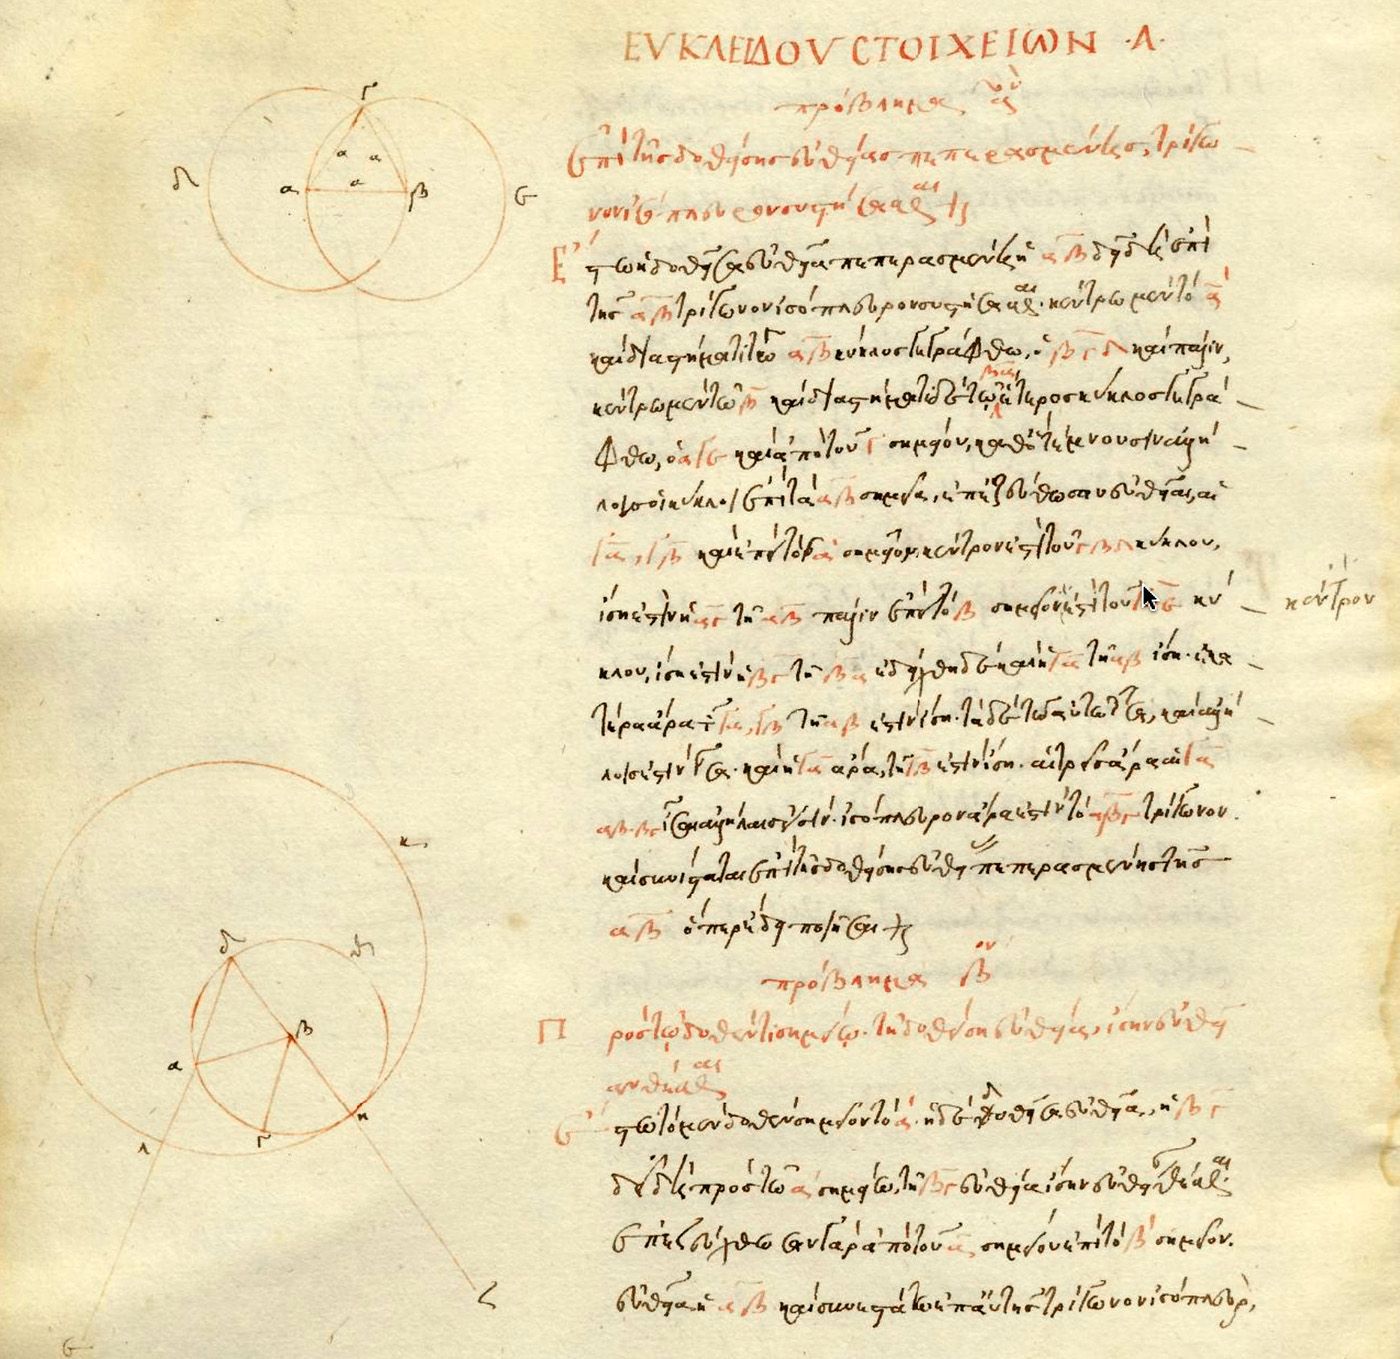 ΕΥΚΛΕΙΔΟΥ ΣΤΟΙΧΕΙΩΝ ·Α·
πρόβλημα α
Ἐπὶ τῆς δοθείσης εὐθείας πεπερασμένης, τρίγω
νον ἰσόπλευρον συστήσασθαι
Ἔστω ἡ δοθεῖσα εὐθεῖα πεπερασμένη ἡ αβ δεῖ δὲ ἐπὶ
τῆς αβ τρίγωνον ἰσόπλευρον συστήσασθαι· κέντρω μὲν τῶ α
καὶ διαστήματι τῶ αβ κύκλος γεγράφθω, ὁ βγδ καὶ πάλιν,
κέντρω μὲν τῶ β καὶ διαστήματι δὲ τῶ βα ἕτερος κύκλος γεγρά
φθω, ὁ αγε καὶ ἀπὸ τοῦ γ σημείου, καθ' ὃ τέμνουσιν ἀλλή
λους οἱ κύκλοι ἐπὶ τὰ αβ σημεῖα, ἐπεζεύχθωσαν εὐθεῖαι, αἱ
γα, γβ καὶ ἐπεὶ τὸ α σημεῖον κέντρον ἐστὶ τοῦ γβδ κύκλου,
ἴση ἐστὶν ἡ αγ τῆ αβ πάλιν ἐπεὶ τὸ β σημεῖον ἐστὶ τοῦ γαε κύ
κέντρον
κλου, ἴση ἐστὶν ἡ βγ τῆ βα ἐδείχθη δὲ καὶ ἡ γα τῆ αβ ἴση· ἑκα
τέρα ἄρα τῶν γα, γβ τῆ αβ ἐστὶν ἴση· τὰ δὲ τῶ αὐτῶ ἴσα, καὶ ἀλλή
λοις ἐστὶν ἴσα· καὶ ἡ γα ἄρα, τῆ γβ ἐστὶν ἴση· αἱ τρεῖς ἄρα αἱ γα
αβ βγ ἴσαι ἀλλήλαις εἰσίν· ἰσόπλευρον ἄρα ἐστὶ τὸ αβγ τρίγωνον·
καὶ συνέσταται ἐπὶ τῆς δοθείσης εὐθείας πεπερασμένης τῆς
αβ ὅπερ ἔδει ποιῆσαι
πρόβλημα β
Πρὸς τῶ δοθέντι σημείω· τῆ δοθείση εὐθεία, ἴσην εὐθεῖ
αν θέσθαι
Ἔστω τὸ μὲν δοθὲν σημεῖον τὸ α· ἡ δὲ δοθεῖσα εὐθεῖα, ἡ βγ
δεῖ δὲ πρὸς τῶ α σημείω, τῆ βγ εὐθεία ἴσην εὐθεῖαν θέσθαι·
Ἐπεζεύχθω γὰρ ἀπὸ τοῦ α σημείου ἐπὶ τὸ β σημεῖον·
εὐθεῖα ἡ αβ καὶ συνεστάτω ἐπ' αὐτῆς τρίγωνον ἰσόπλευρ,
γ
δ
α
β
ε
α
α
α
κ
δ
θ
β
α
η
γ
λ
ζ
ε